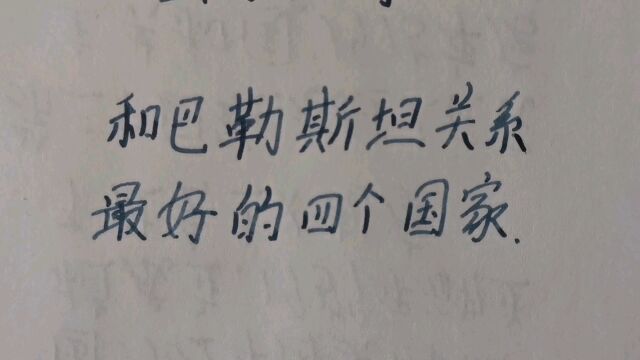 和巴勒斯坦关系
最好的四个国家.